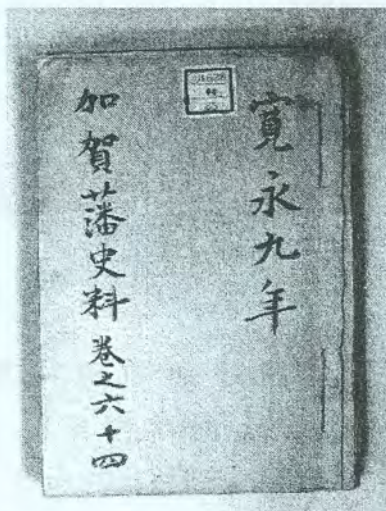 寛永九年
加賀藩史料 巻之六十四